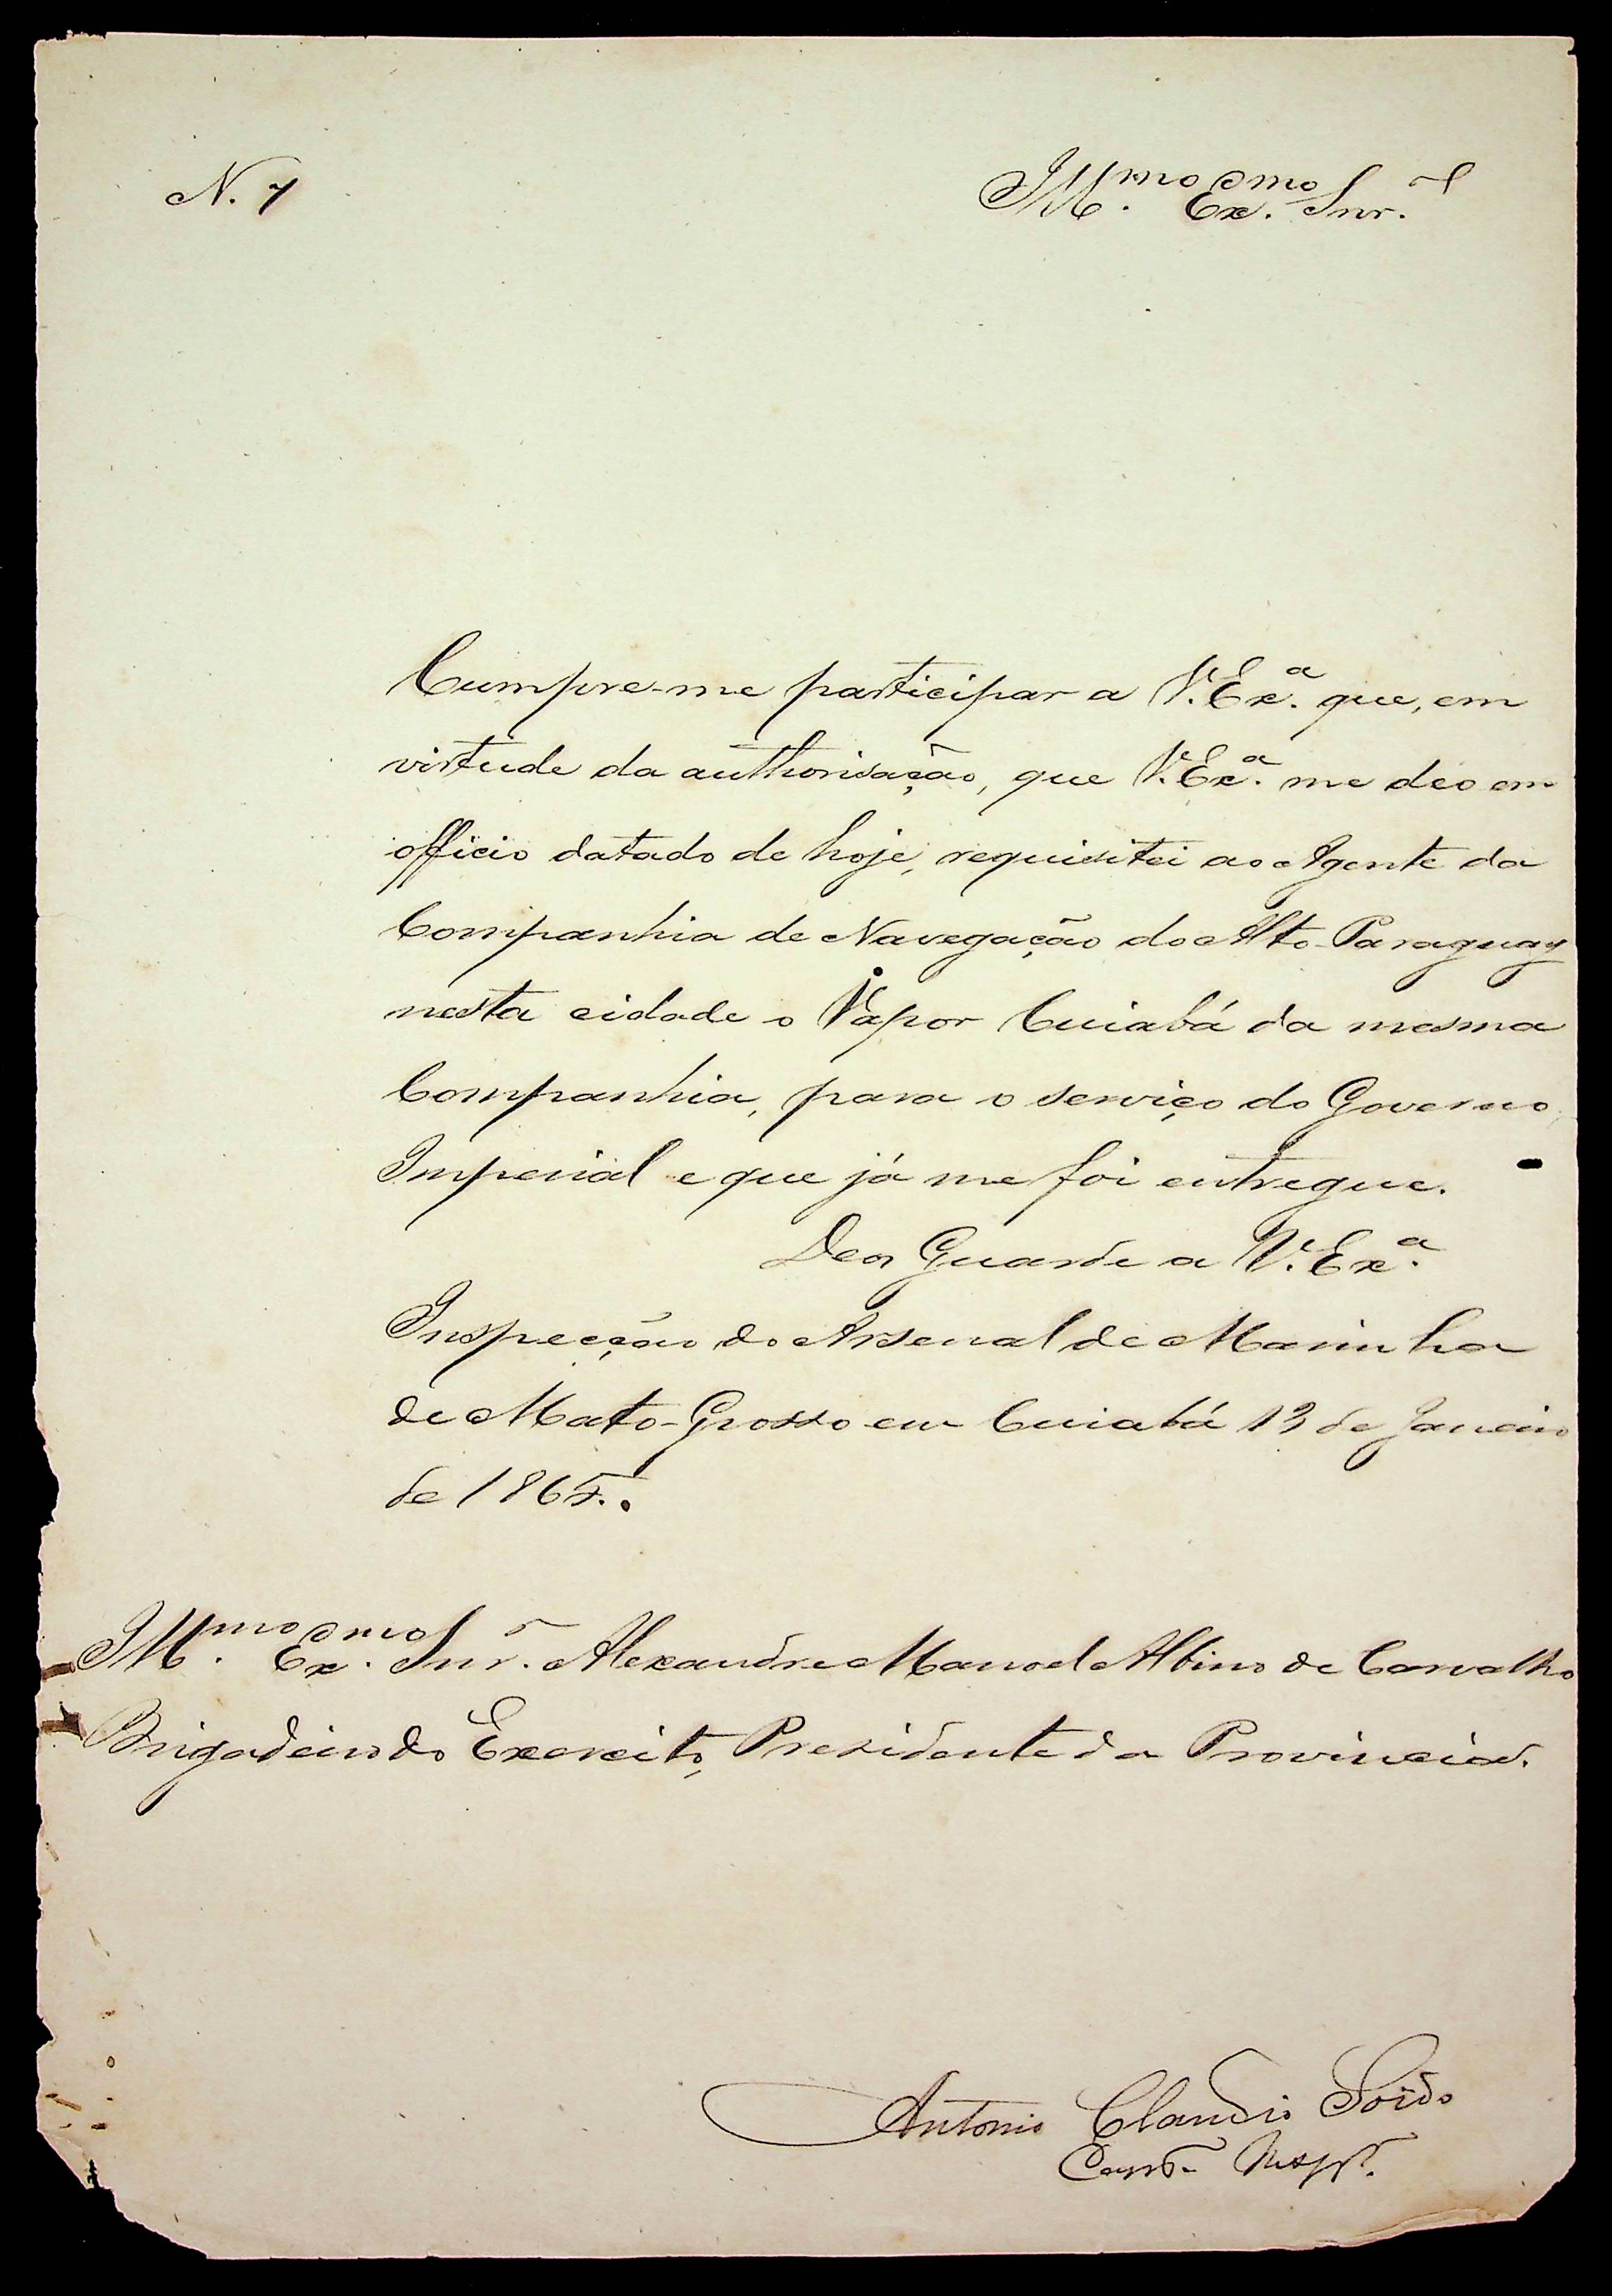 N. 7
Ill.mo Ex.mo Snr.
Cumpre-me participar a V. Ex.a que, em
virtude da authorisação, que V. Ex.a me deo em
officio datado de hoje, requisitei ao Agente da
Companhia de Navegação do Alto-Paraguay
nesta cidade o Vapor Cuiabá da mesma
Companhia, para o serviço do Governo
Imperial e que já me foi entregue.
Deos Guarde a V. Ex.a
Inspecção do Arsenal de Marinha
de Mato-Grosso em Cuiabá 13 de Janeiro
de 1865.
Ill.mo Ex.mo Snr. Alexandre Manoel Albino de Carvalho
Brigadeiro do Exercito, Presidente da Provincia.
Antonio Claudio Soido